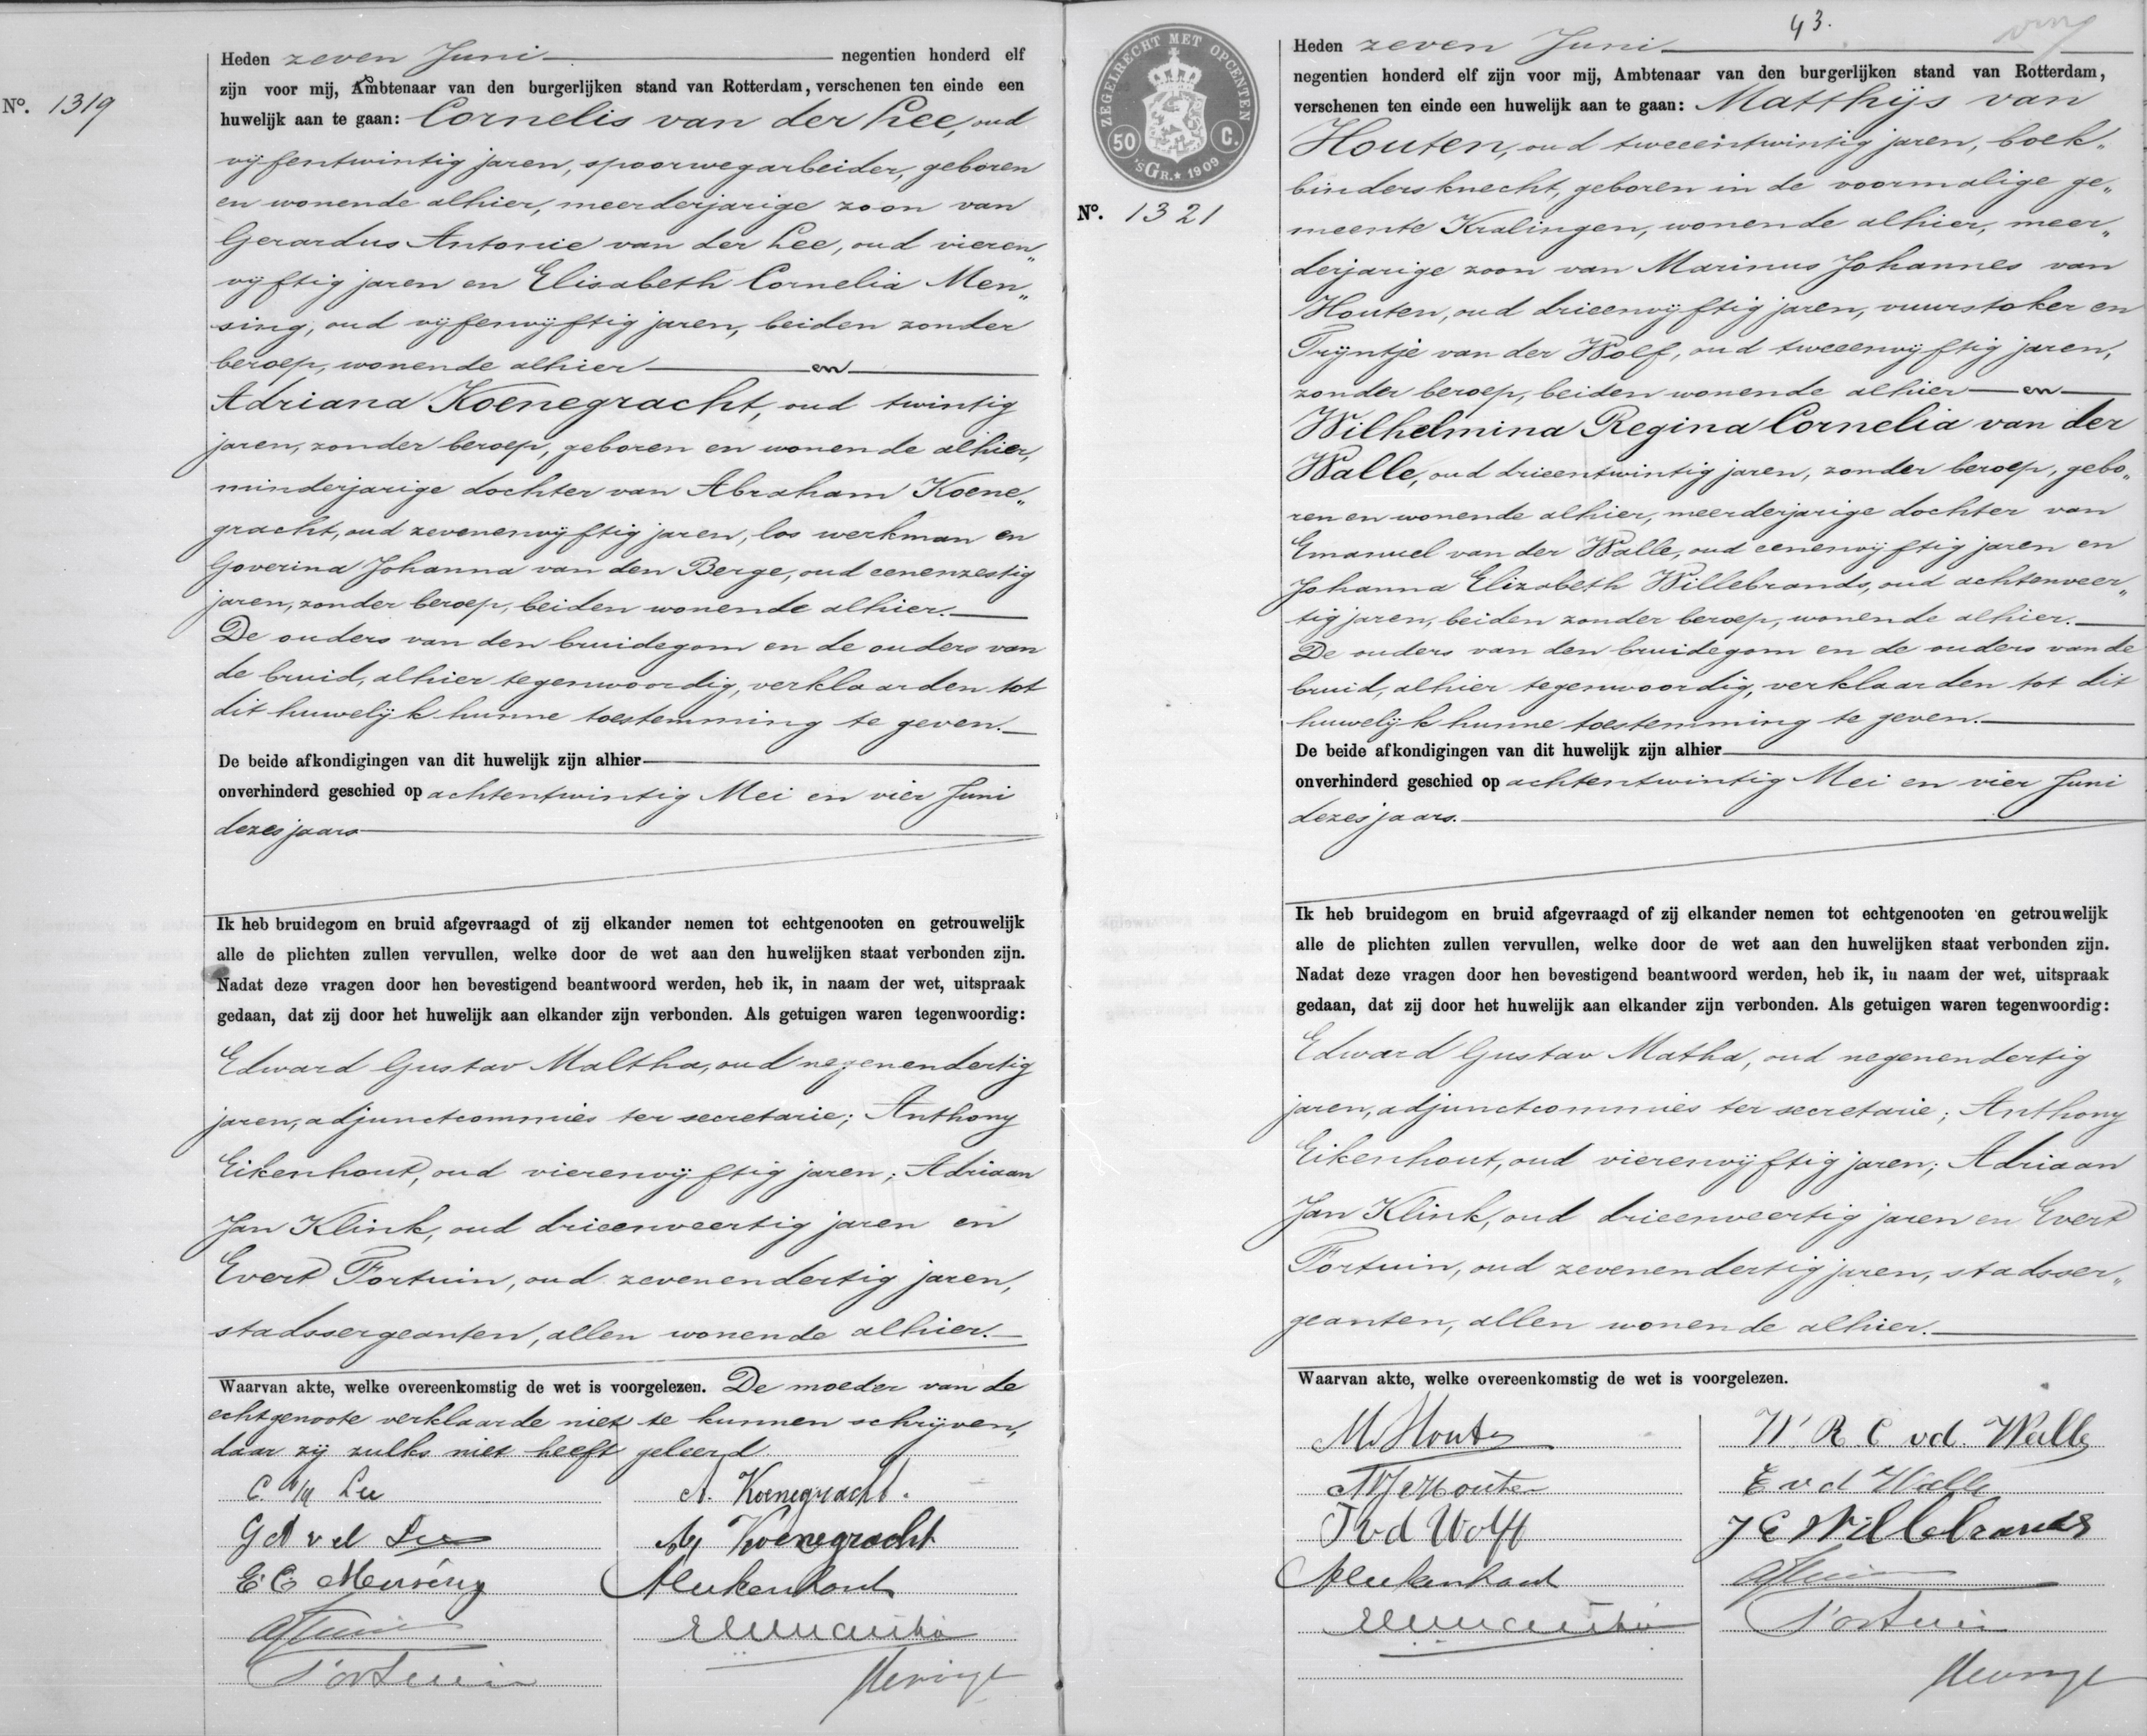 Nº. 1319
Heden zeven Juni negentien honderd elf
zijn voor mij, Ambtenaar van den burgerlijken stand van Rotterdam, verschenen ten einde een
huwelijk aan te gaan: Cornelis van der Lee, oud
vijfentwintig jaren, spoorwegarbeider, geboren
en wonende alhier, meerderjarige zoon van
Gerardus Antonie van der Lee, oud vieren„
vijftig jaren en Elisabeth Cornelia Men„
sing, oud vijfenvijftig jaren, beiden zonder
beroep, wonende alhier en
Adriana Koenegracht, oud twintig
jaren, zonder beroep, geboren en wonende alhier,
minderjarige dochter van Abraham Koene„
gracht, oud zevenenvijftig jaren, los werkman en
Goverina Johanna van den Berge, oud eenenzestig
jaren, zonder beroep, beiden wonende alhier.
De ouders van den bruidegom en de ouders van
de bruid, alhier tegenwoordig, verklaarden tot
dit huwelijk hunne toestemming te geven.
De beide afkondigingen van dit huwelijk zijn alhier
onverhinderd geschied op achtentwintig Mei en vier Juni
dezes jaars
Ik heb bruidegom en bruid afgevraagd of zij elkander nemen tot echtgenooten en getrouwelijk
alle de plichten zullen vervullen, welke door de wet aan den huwelijken staat verbonden zijn.
Nadat deze vragen door hen bevestigend beantwoord werden, heb ik, in naam der wet, uitspraak
gedaan, dat zij door het huwelijk aan elkander zijn verbonden. Als getuigen waren tegenwoordig:
Edward Gustav Maltha, oud negenendertig
jaren, adjunctcommies ter secretarie; Anthony
Eikenhout, oud vierenvijftig jaren; Adriaan
Jan Klink, oud drieenveertig jaren en
Evert Fortuin, oud zevenendertig jaren,
stadssergeanten, allen wonende alhier.
Waarvan akte, welke overeenkomstig de wet is voorgelezen. De moeder van de
echtgenoote verklaarde niet te kunnen schrijven,
daar zij zulks niet heeft geleerd
C. v/d Lee
A. Koenegracht.
G A v d Lee
Koenegracht
E. C. Mensing
Eikenhout
Fortuin
ZEGELRECHT MET OPCENTEN
50 C.
'sGR. * 1909
43.
Nº. 1321
Heden zeven Juni
negentien honderd elf zijn voor mij, Ambtenaar van den burgerlijken stand van Rotterdam,
verschenen ten einde een huwelijk aan te gaan: Matthijs van
Houten, oud tweeentwintig jaren, boek„
bindersknecht, geboren in de voormalige ge„
meente Kralingen, wonende alhier, meer„
derjarige zoon van Marinus Johannes van
Houten, oud drieenvijftig jaren, vuurstoker en
Trijntje van der Wolf, oud tweeenvijftig jaren,
zonder beroep, beiden wonende alhier en
Wilhelmina Regina Cornelia van der
Walle, oud drieentwintig jaren, zonder beroep, gebo„
ren en wonende alhier, meerderjarige dochter van
Emanuel van der Walle, oud eenenvijftig jaren en
Johanna Elizabeth Willebrands, oud achtenveer„
tig jaren, beiden zonder beroep, wonende alhier.
De ouders van den bruidegom en de ouders van de
bruid, alhier tegenwoordig, verklaarden tot dit
huwelijk hunne toestemming te geven.
De beide afkondigingen van dit huwelijk zijn alhier
onverhinderd geschied op achtentwintig Mei en vier Juni
dezes jaars.
Ik heb bruidegom en bruid afgevraagd of zij elkander nemen tot echtgenooten en getrouwelijk
alle de plichten zullen vervullen, welke door de wet aan den huwelijken staat verbonden zijn.
Nadat deze vragen door hen bevestigend beantwoord werden, heb ik, in naam der wet, uitspraak
gedaan, dat zij door het huwelijk aan elkander zijn verbonden. Als getuigen waren tegenwoordig:
Edward Gustav Matha, oud negenendertig
jaren, adjunctcommies ter secretarie; Anthony
Eikenhout, oud vierenvijftig jaren; Adriaan
Jan Klink, oud drieenveertig jaren en Evert
Fortuin, oud zevenendertig jaren, stadsser„
geanten, allen wonende alhier.
Waarvan akte, welke overeenkomstig de wet is voorgelezen.
W. R. C vd. Walle
E v d Walle
T v d Wolff
J E Willebrands
Eikenhout
Fortuin